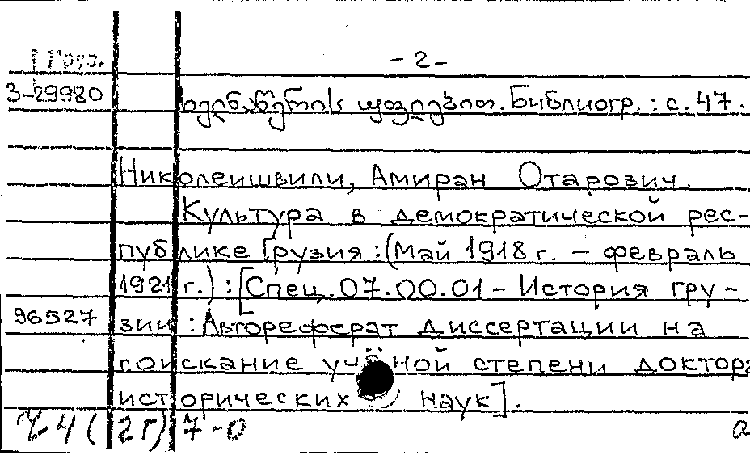 - 2 -
3-29980
ხელნაწერის უფლებით. Библиогр.: с. 47.
Николеишвили, Амиран Отарович.
Культура в демократической рес-
публике Грузия : (Май 1918 г. - февраль
1921 г.) : [Спец. 07.00.01 - История гру-
96527 зии : Автореферат диссертации на
соискание учёной степени доктора
исторических наук].
(2г) 7-0